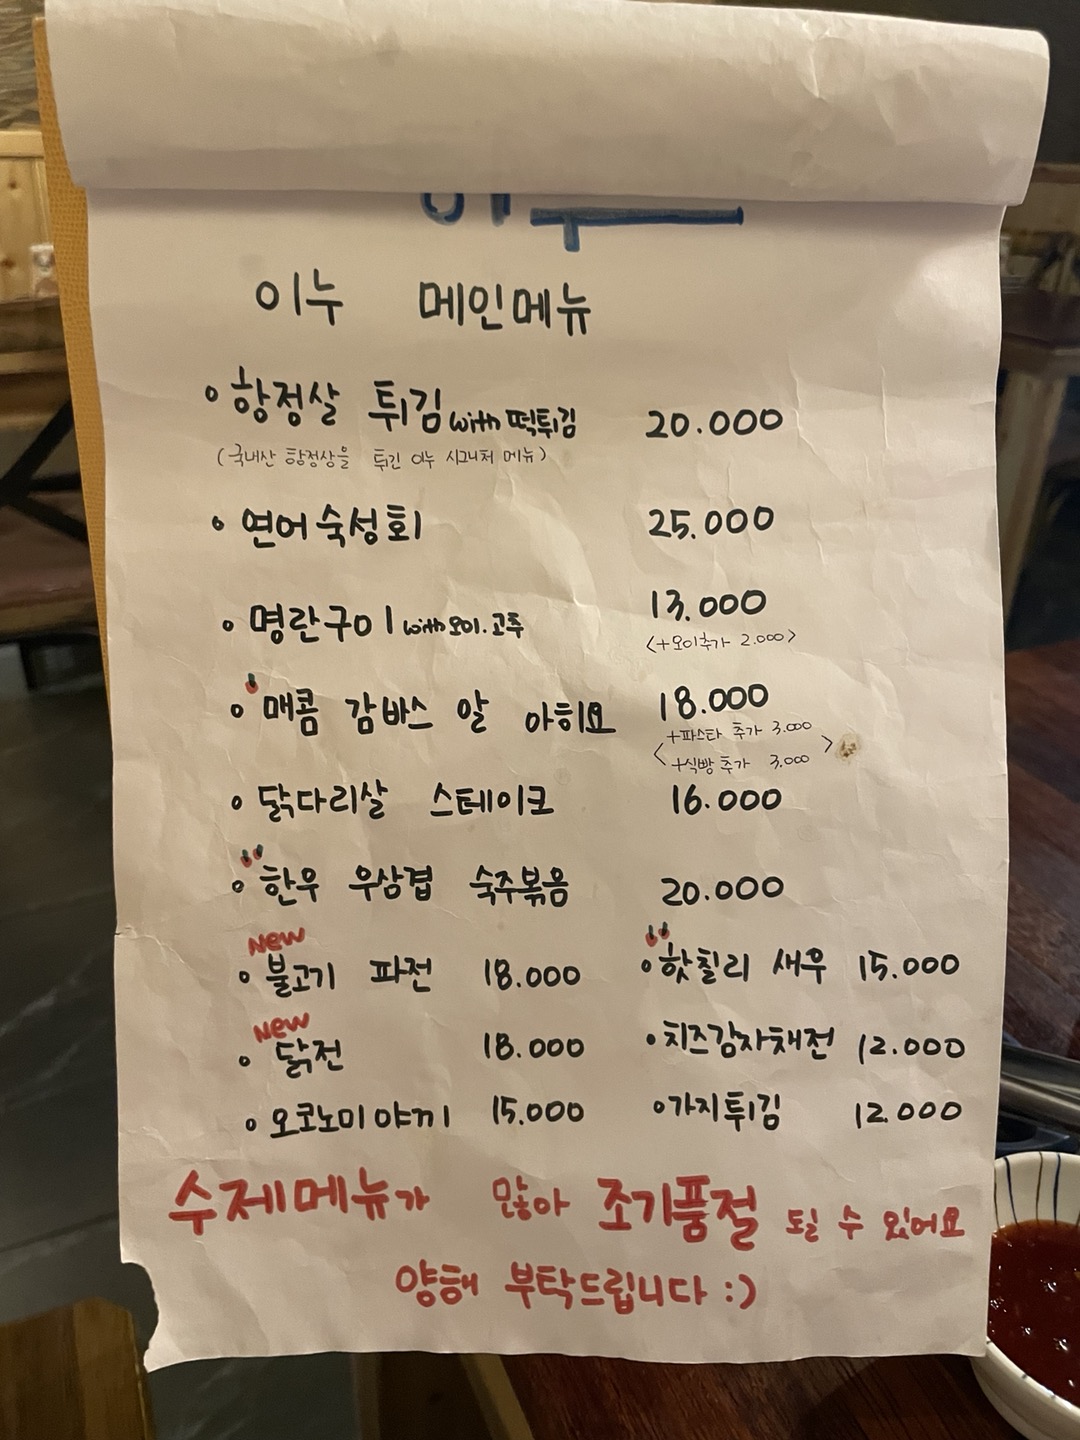 이누
이누 메인메뉴
• 항정살 튀김 with 떡튀김 20.000
(국내산 항정살을 튀긴 이누 시그니처 메뉴)
• 연어숙성회 25.000
• 명란구이 with 오이.고추 13.000
<+오이추가 2.000>
• 매콤 감바스 알 아히요 18.000
<+파스타 추가 3.000
+식빵추가 3.000>
• 닭다리살 스테이크 16.000
• 한우 우삼겹 숙주볶음 20.000
New
• 불고기 파전 18.000 • 핫칠리 새우 15.000
New
• 닭전 18.000 • 치즈감자채전 12.000
• 오코노미야끼 15.000 • 가지튀김 12.000
수제메뉴가 많아 조기품절 될 수 있어요
양해 부탁드립니다 :)